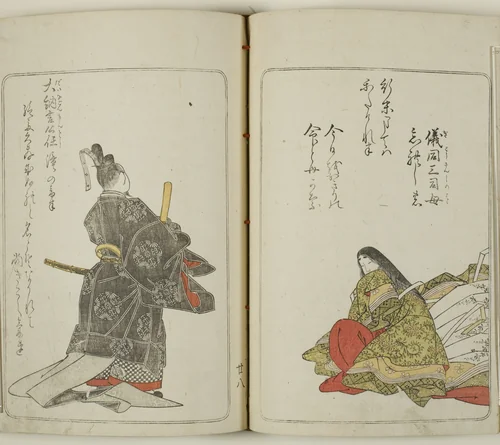 儀同三司母
忘れじの
行末までは
かたければ
今日を限りの
命ともがな
大納言公任 滝の音は
絶えて久しくなりぬれど名こそ流れて
猶きこえけれ
廿八